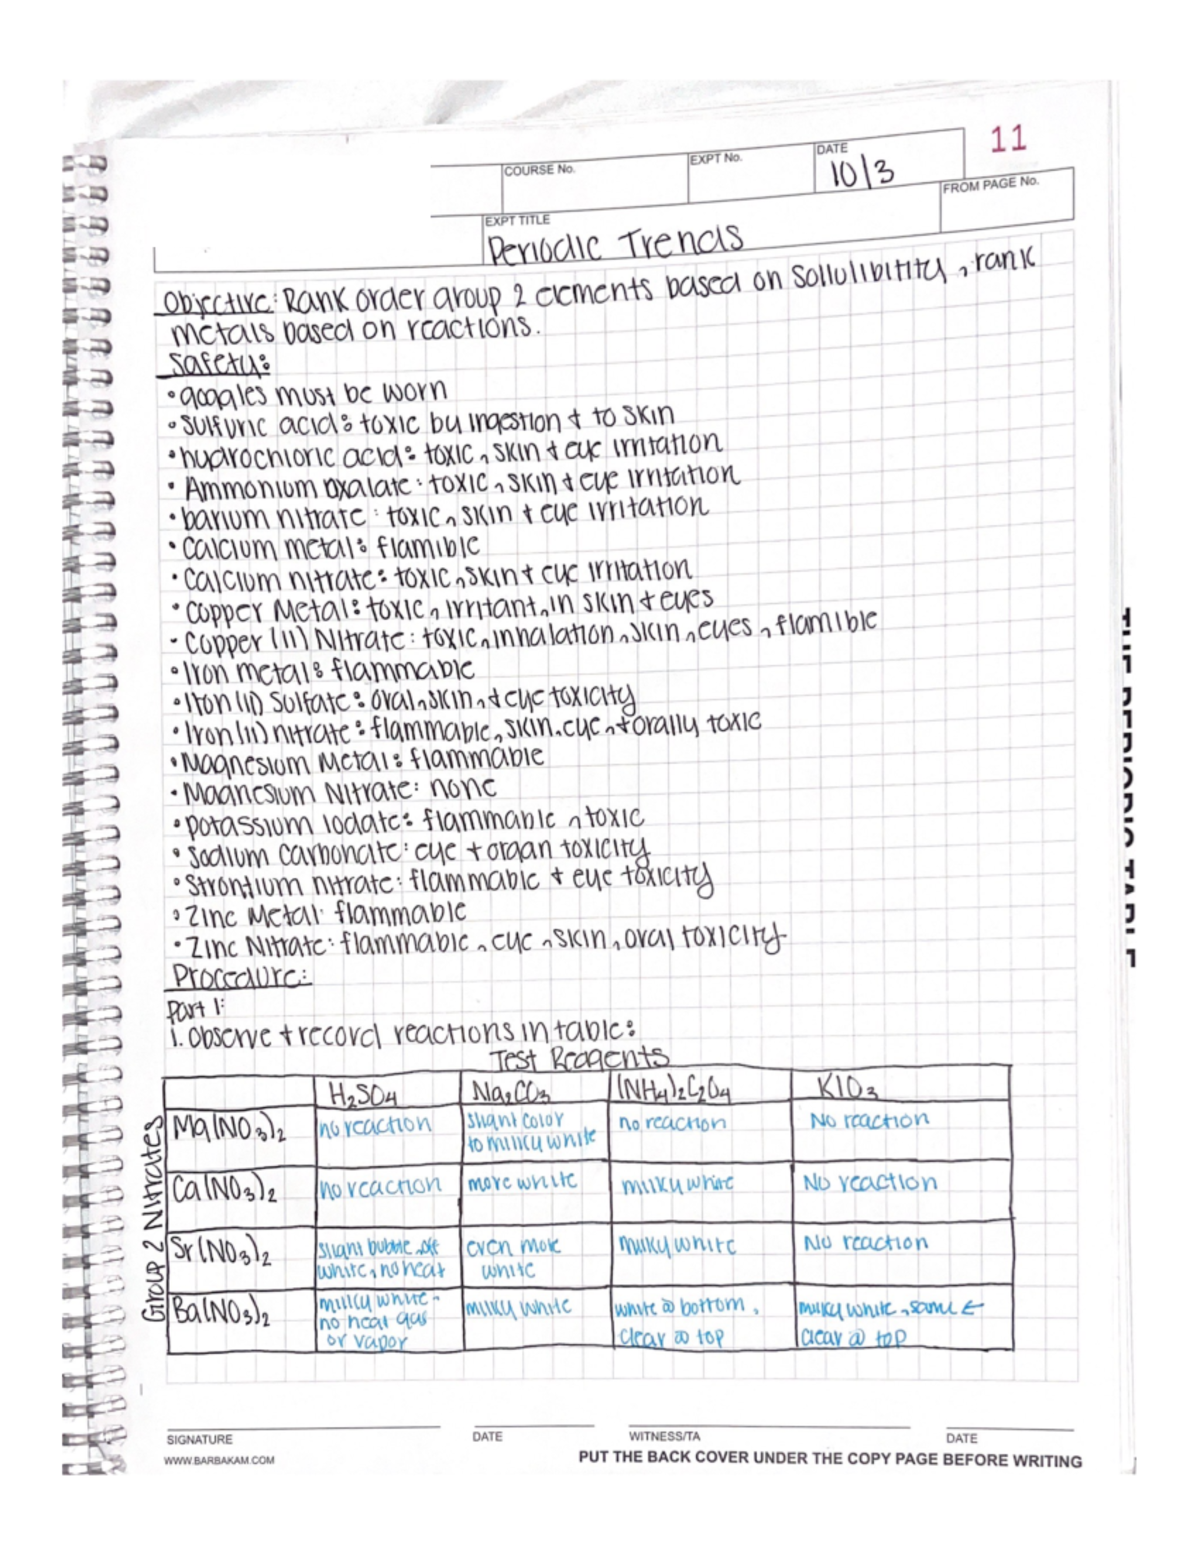 11
COURSE No.
EXPT No.
DATE
10/3
FROM PAGE No.
EXPT TITLE
Periodic Trends
Objective: Rank order group 2 elements based on sollulibitity, rank
metals based on reactions.
Safety:
• goggles must be worn
• Sulfuric acid: toxic by ingestion + to skin
• hydrochloric acid: toxic, skin + eye irritation
• Ammonium oxalate: toxic, skin + eye irritation
• barium nitrate: toxic, skin + eye irritation
• Calcium metal: flamible
• Calcium nitrate: toxic, skin + eye irritation
• Copper Metal: toxic, irritant, in skin + eyes
• Copper (II) Nitrate: toxic, inhalation, skin, eyes, flamible
• Iron metal: flammable
• Iron (II) Sulfate: oral, skin, + eye toxicity
• Iron (II) nitrate: flammable, skin, eye, + orally toxic
• Magnesium Metal: flammable
• Magnesium Nitrate: none
• potassium Iodate: flammable, toxic
• Sodium Carbonate: eye + organ toxicity
• Strontium nitrate: flammable + eye toxicity
• Zinc Metal: flammable
• Zinc Nitrate: flammable, eye, skin, oral toxicity
Procedure:
Part 1:
1. Observe + record reactions in table:
Test Reagents
H₂SO₄ Na₂CO₃ (NH₄)₂C₂O₄ KIO₃
Group 2 Nitrates
Mg(NO₃)₂ no reaction slight color to milky white no reaction No reaction
Ca(NO₃)₂ no reaction more white milky white No reaction
Sr(NO₃)₂ slight bubble, off white, no heat even more white milky white No reaction
Ba(NO₃)₂ milky white, no heat gas or vapor milky white white @ bottom, clear @ top milky white, same ← clear @ top
SIGNATURE
DATE
WITNESS/TA
DATE
WWW.BARBAKAM.COM
PUT THE BACK COVER UNDER THE COPY PAGE BEFORE WRITING
THE PERIODIC TABLE